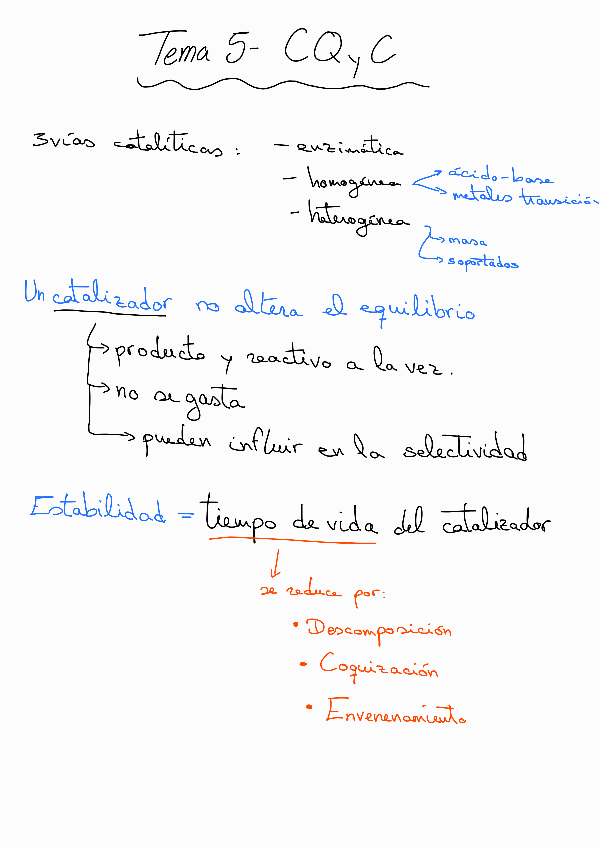 Tema 5- CQyC
3 vías catalíticas: - enzimática
- homogénea → ácido-base
→ metales transición
- heterogénea
→ masa
→ soportados
Un catalizador no altera el equilibrio
→ producto y reactivo a la vez.
→ no se gasta
→ pueden influir en la selectividad
Estabilidad = tiempo de vida del catalizador
se reduce por:
• Descomposición
• Coquización
• Envenenamiento